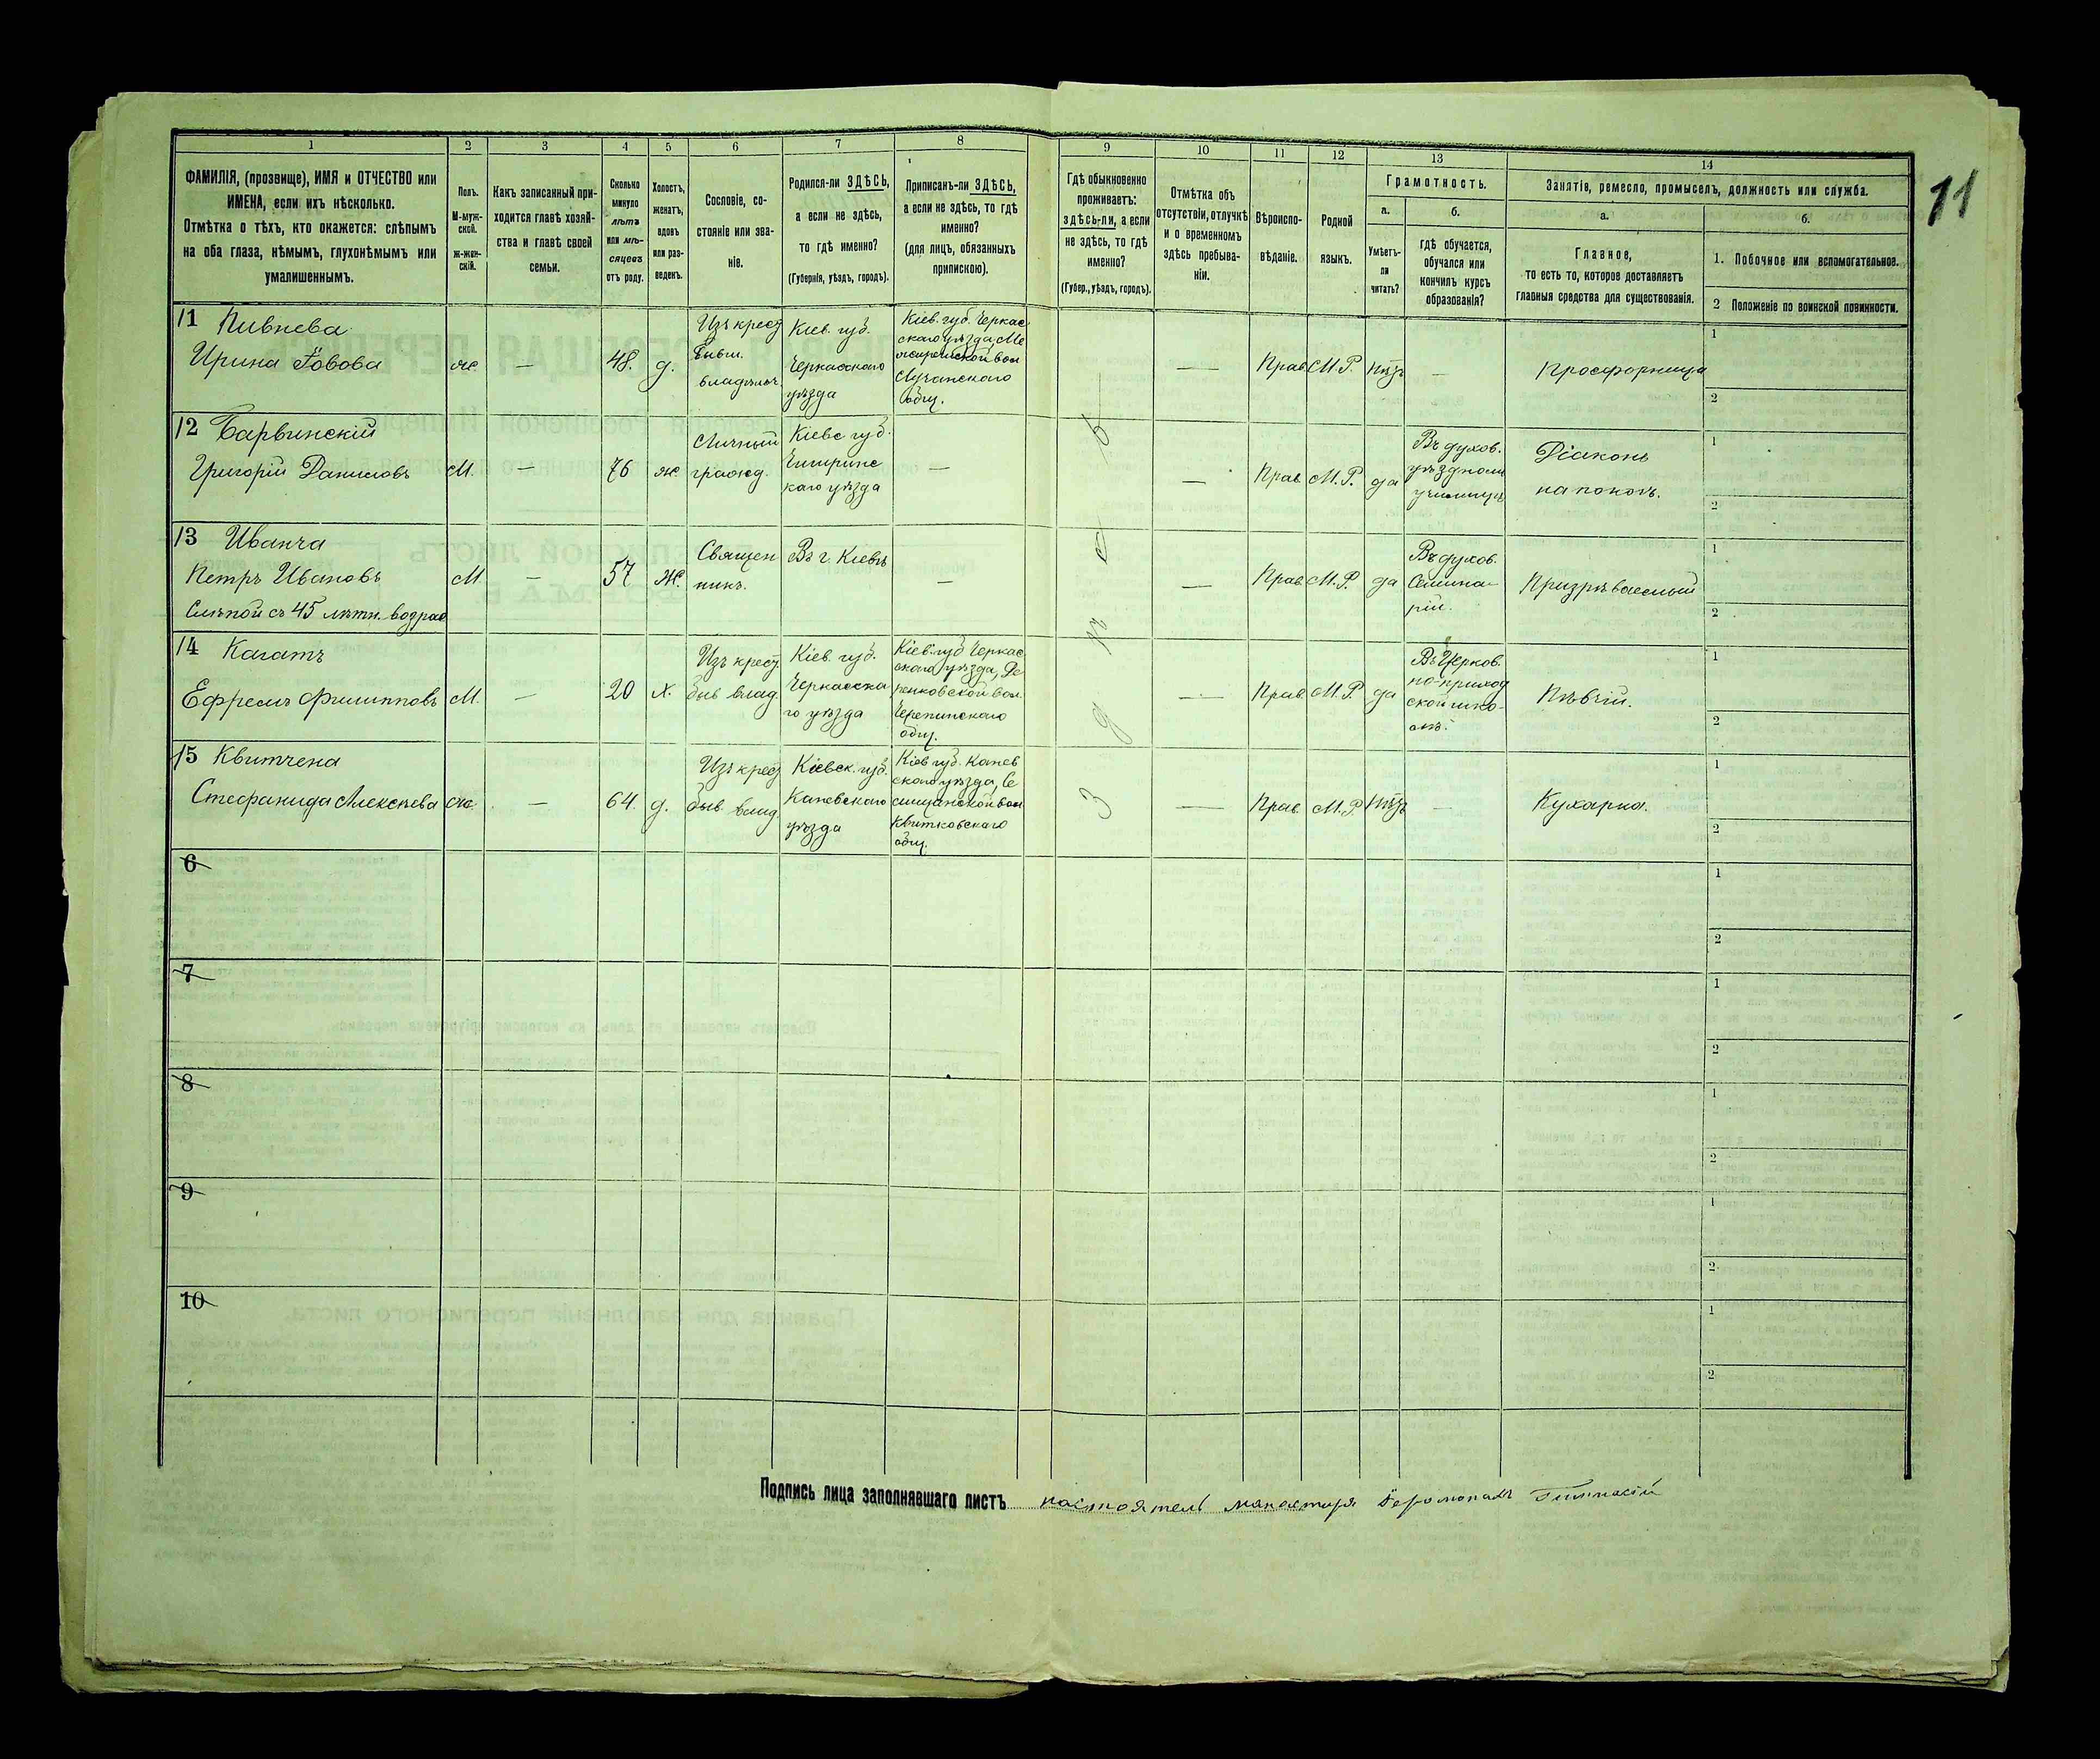 11
1 2 3 4 5 6 7 8 9 10 11 12 13 14
ФАМИЛІЯ, (прозвище), ИМЯ и ОТЧЕСТВО или
ИМЕНА, если ихъ нѣсколько.
Отмѣтка о тѣхъ, кто окажется: слѣпымъ
на оба глаза, нѣмымъ, глухонѣмымъ или
умалишеннымъ.
Полъ.
М-муж-
ской.
ж-жен-
скій.
Какъ записанный при-
ходится главѣ хозяй-
ства и главѣ своей
семьи.
Сколько
минуло
лѣтъ
или мѣ-
сяцевъ
отъ роду.
Холостъ,
женатъ,
вдовъ
или раз-
веденъ.
Сословіе, со-
стояніе или зва-
ніе.
Родился-ли ЗДѢСЬ,
а если не здѣсь,
то гдѣ именно?
(Губернія, уѣздъ, городъ).
Приписанъ-ли ЗДѢСЬ,
а если не здѣсь, то гдѣ
именно?
(для лицъ, обязанныхъ
припискою).
Гдѣ обыкновенно
проживаетъ:
здѣсь-ли, а если
не здѣсь, то гдѣ
именно?
(Губер., уѣздъ, городъ).
Отмѣтка объ
отсутствіи, отлучкѣ
и о временномъ
здѣсь пребыва-
ніи.
Вѣроиспо-
вѣданіе.
Родной
языкъ.
Грамотность.
а.
Умѣетъ-
ли
читать?
б.
гдѣ обучается,
обучался или
кончилъ курсъ
образованія?
Занятіе, ремесло, промыселъ, должность или служба.
а.
Главное,
то есть то, которое доставляетъ
главныя средства для существованія.
б.
1. Побочное или вспомогательное.
2 Положеніе по воинской повинности.
11 Пивнева
Ирина Іовова
же
—
48.
д.
Изъ крест
бывш.
владѣльч.
Кіев. губ.
Черкасскаго
уѣзда
Кіев. губ. Черкас
скаго уѣзда, Ме
жиричской вол
Лучанскаго
общ.
—
Прав.
М.Р.
нѣтъ
—
Просфорница
1
2
12 Барвинскій
Григорій Даниловъ
М.
—
76
ж.
Личный
гражд.
Кіевс губ.
Чигиринс
каго уѣзда
—
—
Прав
М.Р.
да
Въ духов.
уѣздномъ
училищѣ
Діаконъ
на покоѣ.
1
2
13 Иванча
Петръ Ивановъ
Слѣпой съ 45 лѣтн. возрас
М
—
57
ж.
Священ
никъ.
Въ г. Кіевѣ
—
—
Прав
М.Р.
да
Въ духов.
Семина-
ріи.
Призрѣваемый
1
2
14 Кагатъ
Ефремъ Филипповъ
М.
—
20
х.
Изъ крест
быв влад.
Кіев. губ.
Черкасска
го уѣзда
Кіев. губ Черкас
скаго уѣзда, Де
ренковской вол.
Черепинскаго
общ.
—
Прав.
М.Р.
да
Въ Церков.
но-приход
ской шко-
лѣ.
Пѣвчій.
1
2
15 Квитчена
Стефанида Алексѣева
же.
—
64.
д.
Изъ крест
быв влад.
Кіевск. губ.
Каневскаго
уѣзда
Кіев губ. Канев
скаго уѣзда, Се
лищанской вол
Квитковскаго
общ.
Здѣсь
—
Прав.
М.Р.
нѣтъ
—
Кухарка.
1
2
6
1
2
7
1
2
8
1
2
9
1
2
10
1
2
Подпись лица заполнявшаго листъ настоятель монастыря Іеромонахъ